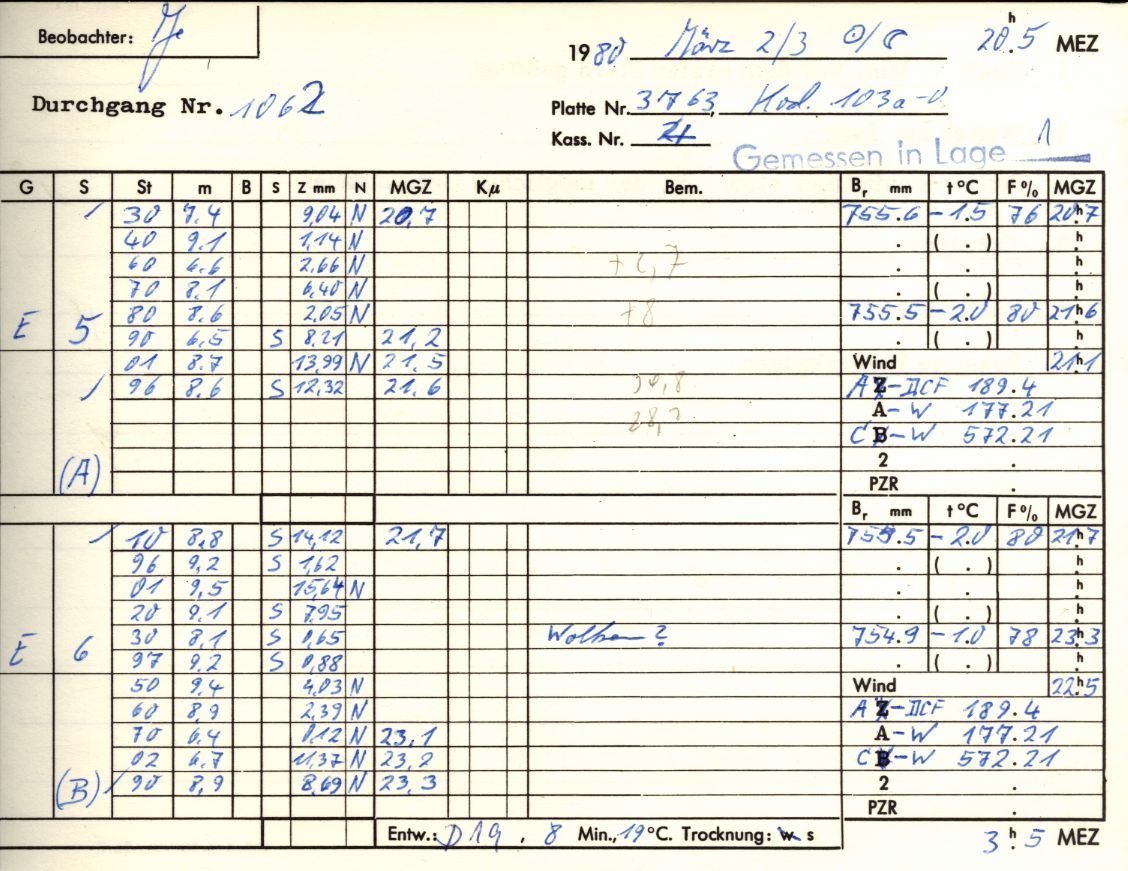 Beobachter: Je
1980 März 2/3 ☉/☾ 20ʰ.5 MEZ
Durchgang Nr. 1062
Platte Nr. 3763, Kod. 103a-O
Kass. Nr. 21
Gemessen in Lage 1
G S St m B S Z mm N MGZ Kμ Bem. Br mm t°C F% MGZ
/ 30 7.4 9,04 N 20,7 755.6 -1.5 76 20ʰ.7
40 9.1 1,14 N . ( . ) ʰ.
60 6.6 2,66 N +2,7 . . ʰ.
70 8.1 6,40 N . ( . ) ʰ.
E 5 80 8.6 2,05 N +8 755.5 -2.0 80 21ʰ.6
90 6.5 S 8.21 21,2 . ( . ) ʰ.
01 8.7 13,99 N 21.5 Wind 21ʰ.1
/ 96 8.6 S 12,32 21.6 A Z-DCF 189.4
A-W 177.21
C B-W 572.21
(A) 2 .
PZR .
Br mm t°C F% MGZ
/ 10 8,8 S 14,12 21,7 755.5 -2.0 80 21ʰ.7
96 9,2 S 1,62 . ( . ) ʰ.
01 9,5 15,64 N . . ʰ.
20 9.1 S 7,95 . ( . ) ʰ.
E 6 30 8,1 S 0,65 Wolken? 754.9 -1.0 78 23ʰ.3
97 9.2 S 0,88 . ( . ) ʰ.
50 9,4 4,03 N Wind 22ʰ.5
60 8,9 2,39 N A Z-DCF 189.4
70 6.4 0,12 N 23,1 A-W 177.21
02 6.7 11,37 N 23,2 C B-W 572.21
(B) / 90 8,9 8,69 N 23,3 2 .
PZR .
Entw.: D19, 8 Min., 19°C. Trocknung: w s 3ʰ.5 MEZ